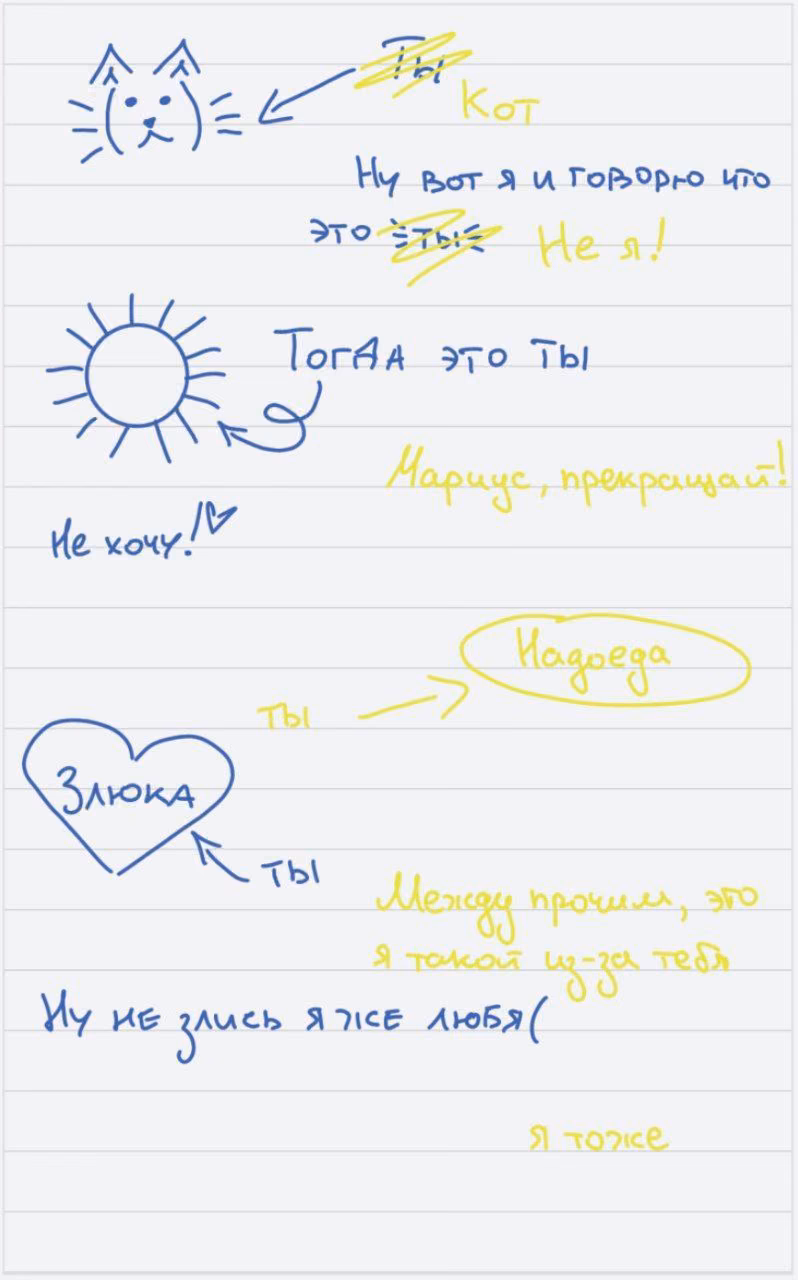 Ты
Кот
Ну вот я и говорю что
это ты Не я!
Тогда это ты
Мариус, прекращай!
Не хочу!
Надоеда
ты
Злюка
ты
Между прочим, это
я такой из-за тебя
Ну не злись я же любя(
я тоже